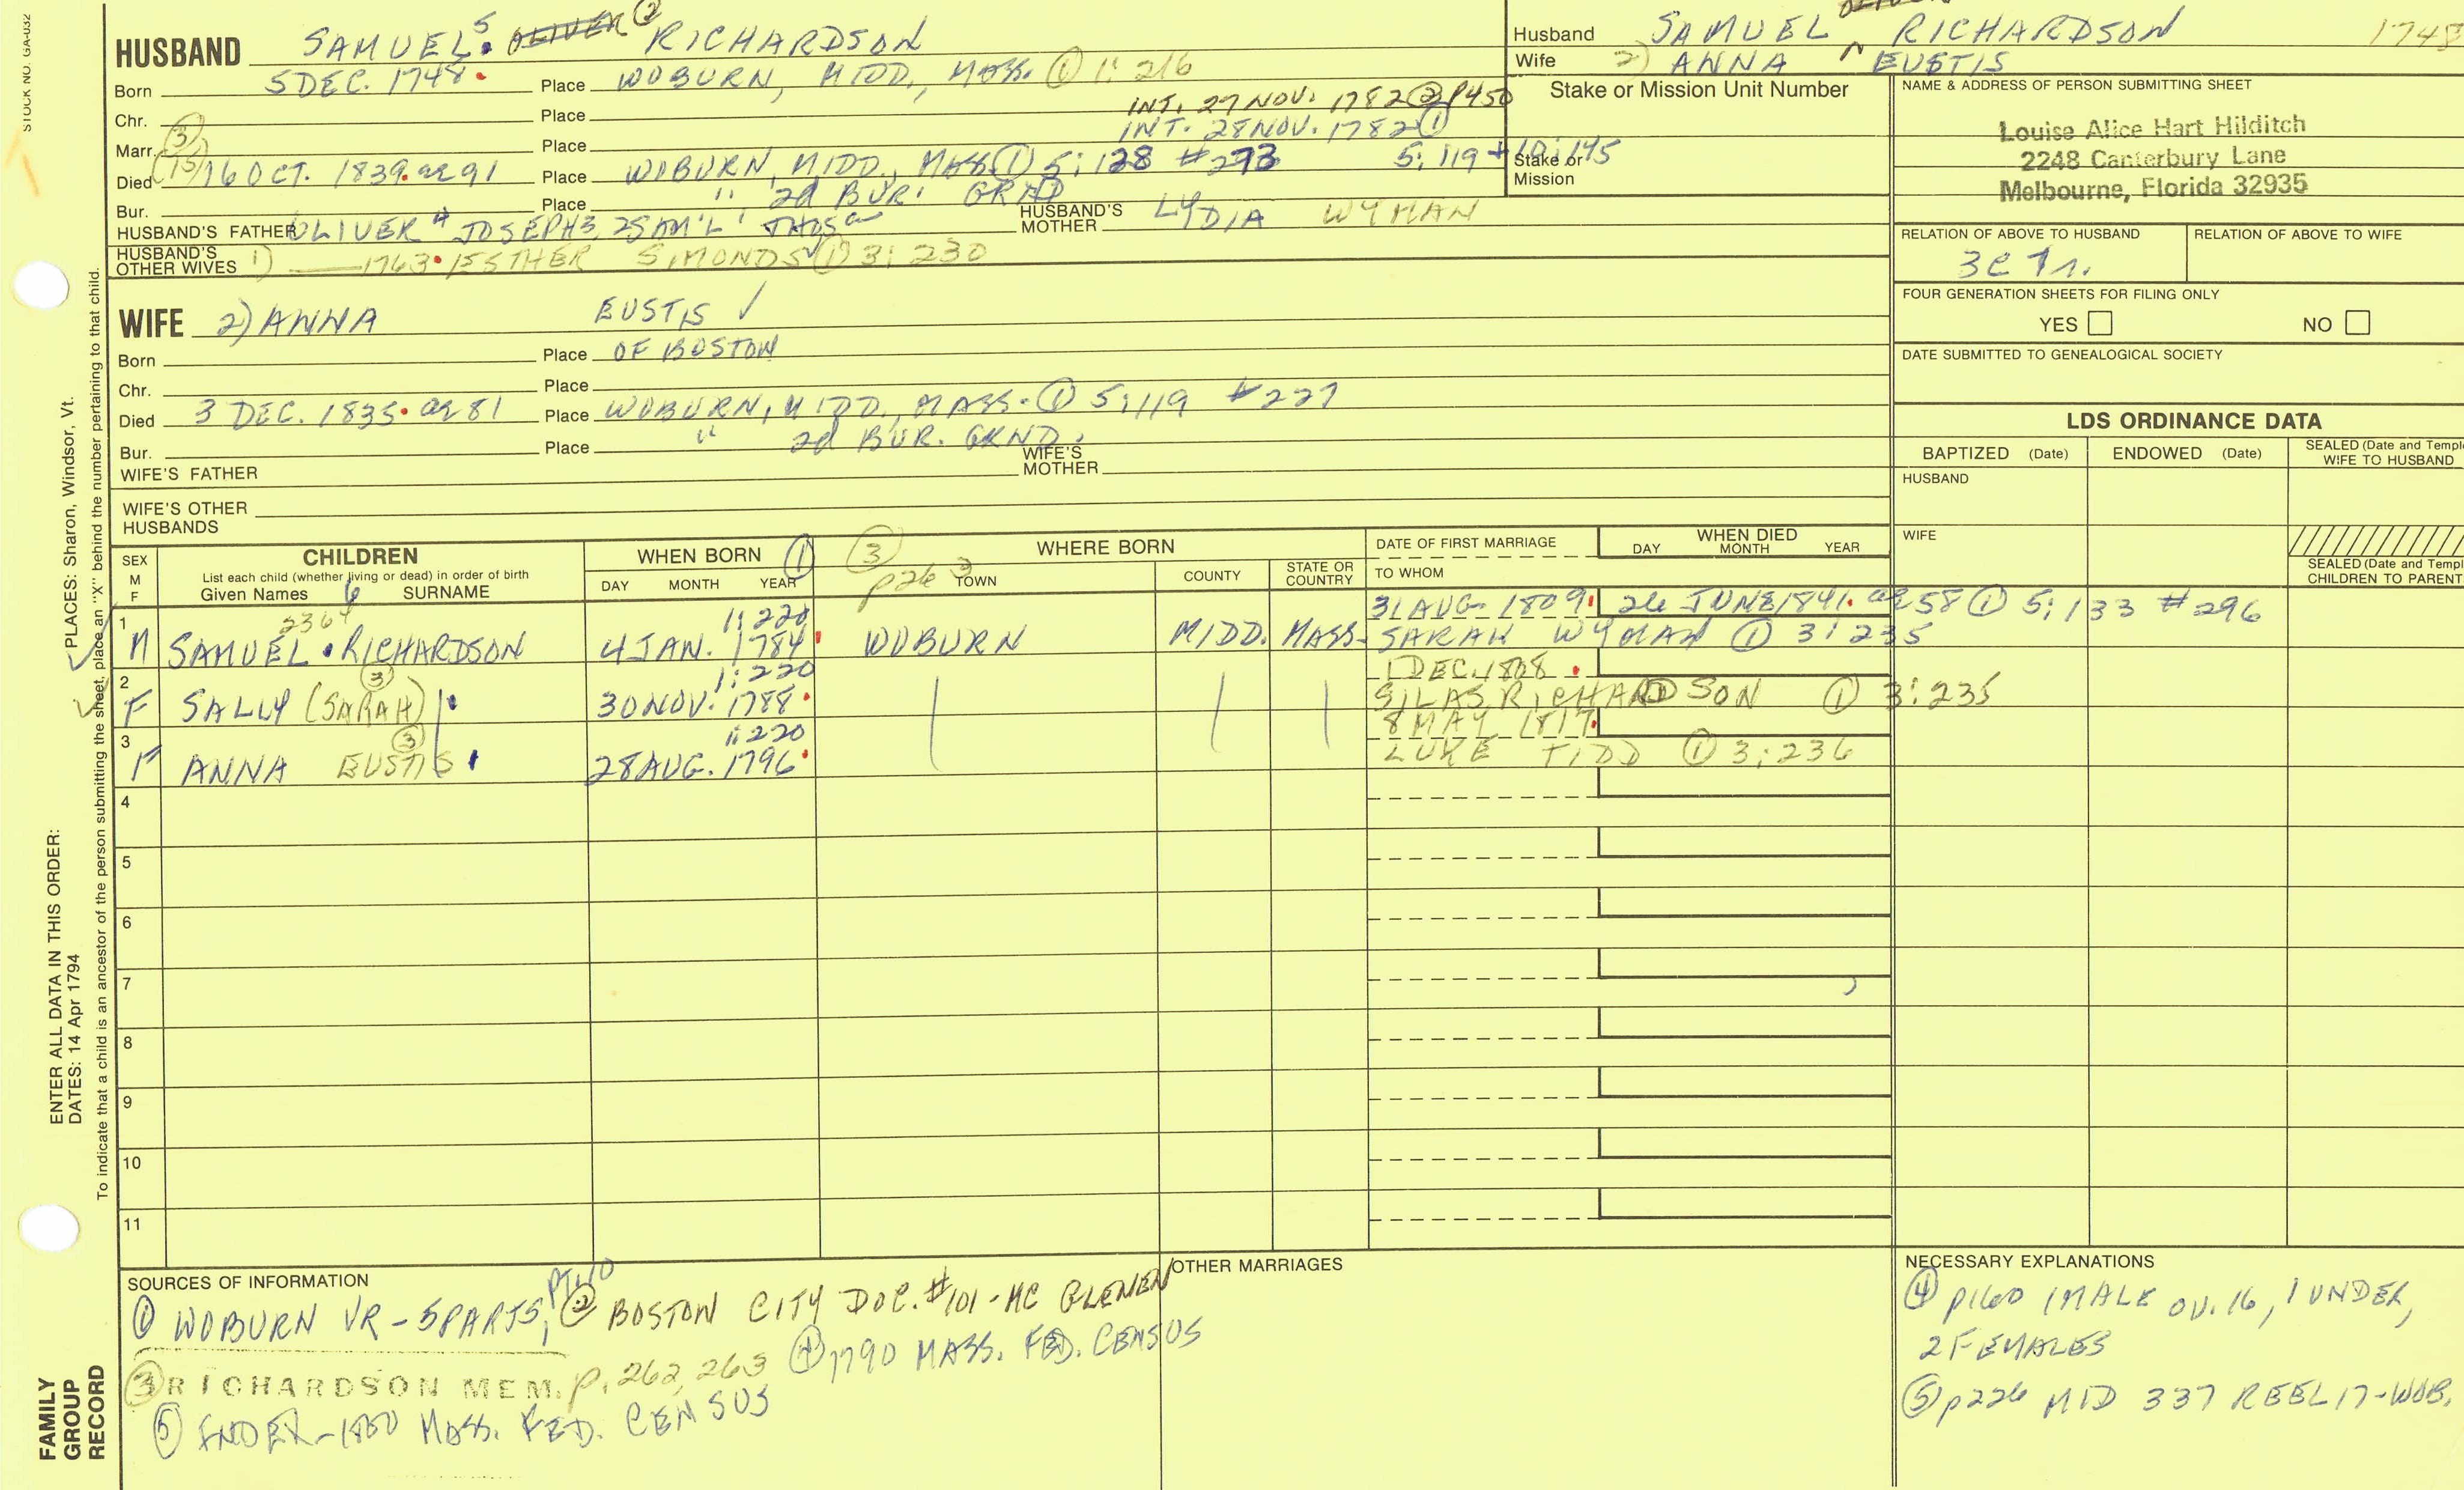 STOCK NO. GA-032
HUSBAND SAMUEL 5 OLIVER ② RICHARDSON
Born 5 DEC. 1748 Place WOBURN, MIDD., MASS. ① 1: 216
INT. 27 NOV. 1782 ② P450
Chr. Place
INT. 28 NOV. 1782 ①
Marr. ③ Place
5: 119 + 10: 195
Died (15) 16 OCT. 1839. ae 91 Place WOBURN, MIDD., MASS. ① 5: 128 # 293
Bur. Place " 2d BUR. GRND
HUSBAND'S FATHER OLIVER 4 JOSEPH 3, 2 SAM'L 1 THOS HUSBAND'S MOTHER LYDIA WYMAN
HUSBAND'S OTHER WIVES 1) 1763. ESTHER SIMONDS ① 3: 230
WIFE 2) ANNA EUSTIS ✓
Born Place OF BOSTON
Chr. Place
Died 3 DEC. 1835. ae 81 Place WOBURN, MIDD., MASS. ① 5: 119 # 227
Bur. Place " 2d BUR. GRND.
WIFE'S FATHER WIFE'S MOTHER
WIFE'S OTHER HUSBANDS
Husband SAMUEL OLIVER RICHARDSON 1748
Wife 2) ANNA EUSTIS
Stake or Mission Unit Number
Stake or Mission
NAME & ADDRESS OF PERSON SUBMITTING SHEET
Louise Alice Hart Hilditch
2248 Canterbury Lane
Melbourne, Florida 32935
RELATION OF ABOVE TO HUSBAND RELATION OF ABOVE TO WIFE
FOUR GENERATION SHEETS FOR FILING ONLY
YES NO
DATE SUBMITTED TO GENEALOGICAL SOCIETY
LDS ORDINANCE DATA
BAPTIZED (Date) ENDOWED (Date) SEALED (Date and Temple) WIFE TO HUSBAND
HUSBAND
WIFE
SEALED (Date and Temple) CHILDREN TO PARENTS
SEX M F
CHILDREN
List each child (whether living or dead) in order of birth
Given Names 6 SURNAME
WHEN BORN ①
DAY MONTH YEAR
③ p263
WHERE BORN
TOWN COUNTY STATE OR COUNTRY
DATE OF FIRST MARRIAGE
TO WHOM
WHEN DIED
DAY MONTH YEAR
1 2364 1: 220 31 AUG. 1809. 26 JUNE 1841. ae 58 ① 5: 133 # 296
M SAMUEL RICHARDSON 4 JAN. 1784 WOBURN MIDD. MASS. SARAH WYMAN ① 3: 235
2 ③ 1: 220 1 DEC. 1808
F SALLY (SARAH) 30 NOV. 1788 SILAS RICHARDSON ① 3: 235
3 ③ 1: 220 8 MAY 1817
F ANNA EUSTIS 28 AUG. 1796 LUKE TIDD ① 3: 236
4
5
6
7
8
9
10
11
SOURCES OF INFORMATION
① WOBURN VR - 5 PARTS, PT. 10 ② BOSTON CITY DOC. #101 - MC GLENEN
③ RICHARDSON MEM. p. 262, 263 ④ 1790 MASS. FED. CENSUS
⑤ INDEX - 1800 MASS. FED. CENSUS
OTHER MARRIAGES
NECESSARY EXPLANATIONS
④ p160 1 MALE OV. 16, 1 UNDER,
2 FEMALES
⑤ p226 MID 337 REEL 17-WOB.
PLACES: Sharon, Windsor, Vt.
To indicate that a child is an ancestor of the person submitting the sheet, place an "X" behind the number pertaining to that child.
ENTER ALL DATA IN THIS ORDER:
DATES: 14 Apr 1794
FAMILY GROUP RECORD